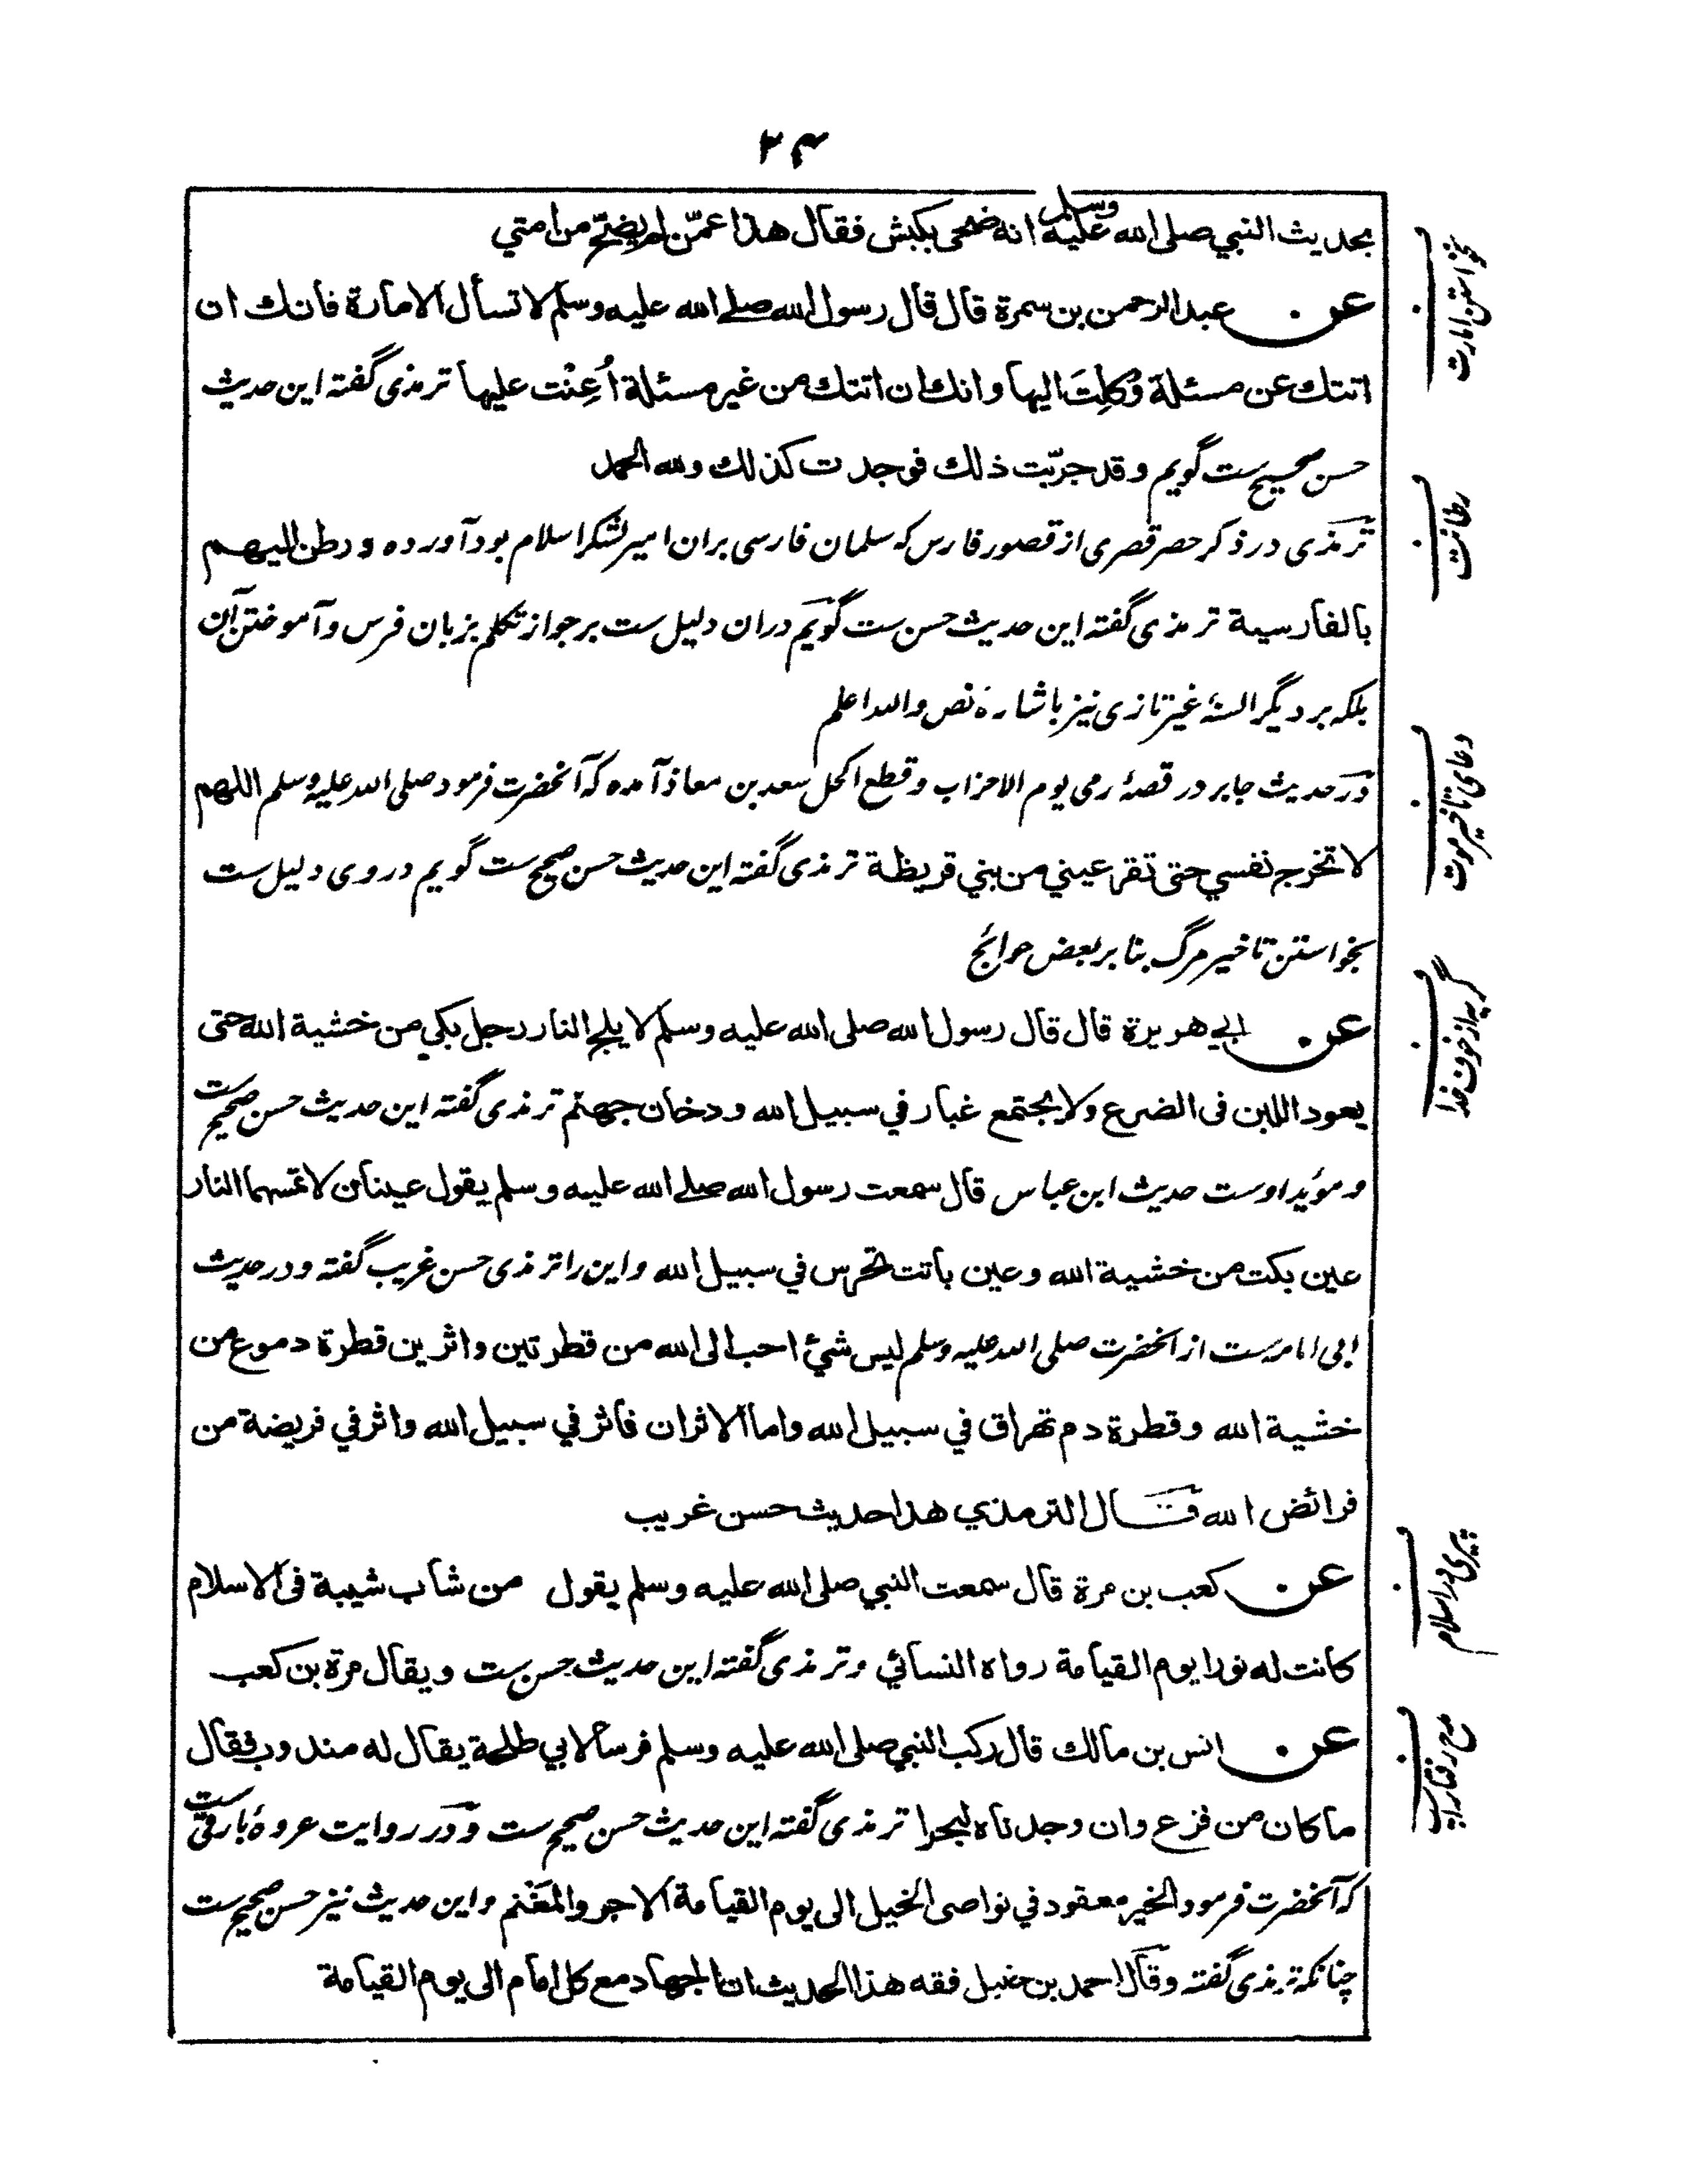 ۲۴
بحديث النبي صلى الله عليه وسلم انه ضحى بكبش فقال هذا عمّن لم يضحّ من امتي
عن عبد الرحمن بن سمرة قال قال رسول الله صلے الله عليه وسلم لا تسأل الامارة فانك ان
اتتك عن مسئلة وُكِلتَ اليها وانك ان اتتك من غير مسئلة اُعِنْت عليها ترمذی گفته این حدیث
حسن صحیح ست گویم وقد جرّبت ذلك فوجدت كذلك ولله الحمد
ترمذی در ذکر حصر قصری از قصور فارس که سلمان فارسی بران امیر لشکر اسلام بود آورده ورطن اليهم
بالفارسية ترمذی گفته این حدیث حسن ست گویم دران دلیل ست بر جواز تکلم بزبان فرس و آموختن آن
بلکه بر دیگر السنۀ غیر تازی نیز باشارۀ نص والله اعلم
در حدیث جابر در قصۀ رمی یوم الاحزاب وقطع اکحل سعد بن معاذ آمده که آنحضرت فرمود صلی الله علیه وسلم اللهم
لا تخرج نفسي حتى تقر عيني من بني قريظة ترمذی گفته این حدیث حسن صحیح ست گویم در وی دلیل ست
بخواستن تاخیر مرگ بنا بر بعض حوائج
عن ابي هريرة قال قال رسول الله صلى الله عليه وسلم لا يلج النار رجل بكي من خشية الله حتى
يعود اللبن فى الضرع ولا يجتمع غبار في سبيل الله ودخان جهنم ترمذی گفته این حدیث حسن صحیح ست
و موید اوست حدیث ابن عباس قال سمعت رسول الله صلے الله عليه وسلم يقول عينان لا تمسهما النار
عين بكت من خشية الله وعين باتت تحرس في سبيل الله واین را ترمذی حسن غریب گفته و در حدیث
ابی امامه ست از آنحضرت صلی الله علیه وسلم ليس شئ احب الى الله من قطرتين واثرين قطرة دموع من
خشية الله وقطرة دم تهراق في سبيل الله واما الاثران فاثر في سبيل الله واثر في فريضة من
فرائض الله قال الترمذي هذا حديث حسن غريب
عن كعب بن مرة قال سمعت النبي صلى الله عليه وسلم يقول من شاب شيبة فى الاسلام
كانت له نورا يوم القيامة رواه النسائي وترمذی گفته این حدیث حسن ست ويقال مرة بن كعب
عن انس بن مالك قال ركب النبي صلى الله عليه وسلم فرسا لابي طلحة يقال له مندوب فقال
ما كان من فزع وان وجدناه لبحرا ترمذی گفته این حدیث حسن صحیح ست و در روایت عروۀ بارقی ست
که آنحضرت فرمود الخير معقود في نواصى الخيل الى يوم القيامة الاجر والمغنم واین حدیث نیز حسن صحیح ست
چنانکه ترمذی گفته وقال احمد بن حنبل فقه هذا الحديث ان الجهاد مع كل امام الى يوم القيامة
نخواستن امارت
رطانت
دعای تاخیر موت
گریه از خوف خدا
پیری در اسلام
مدح رفتار اسپ